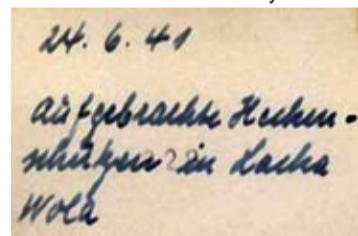 24. 6. 41
Aufgebrachte Hecken-
schützen ?? in Lacka
Wola